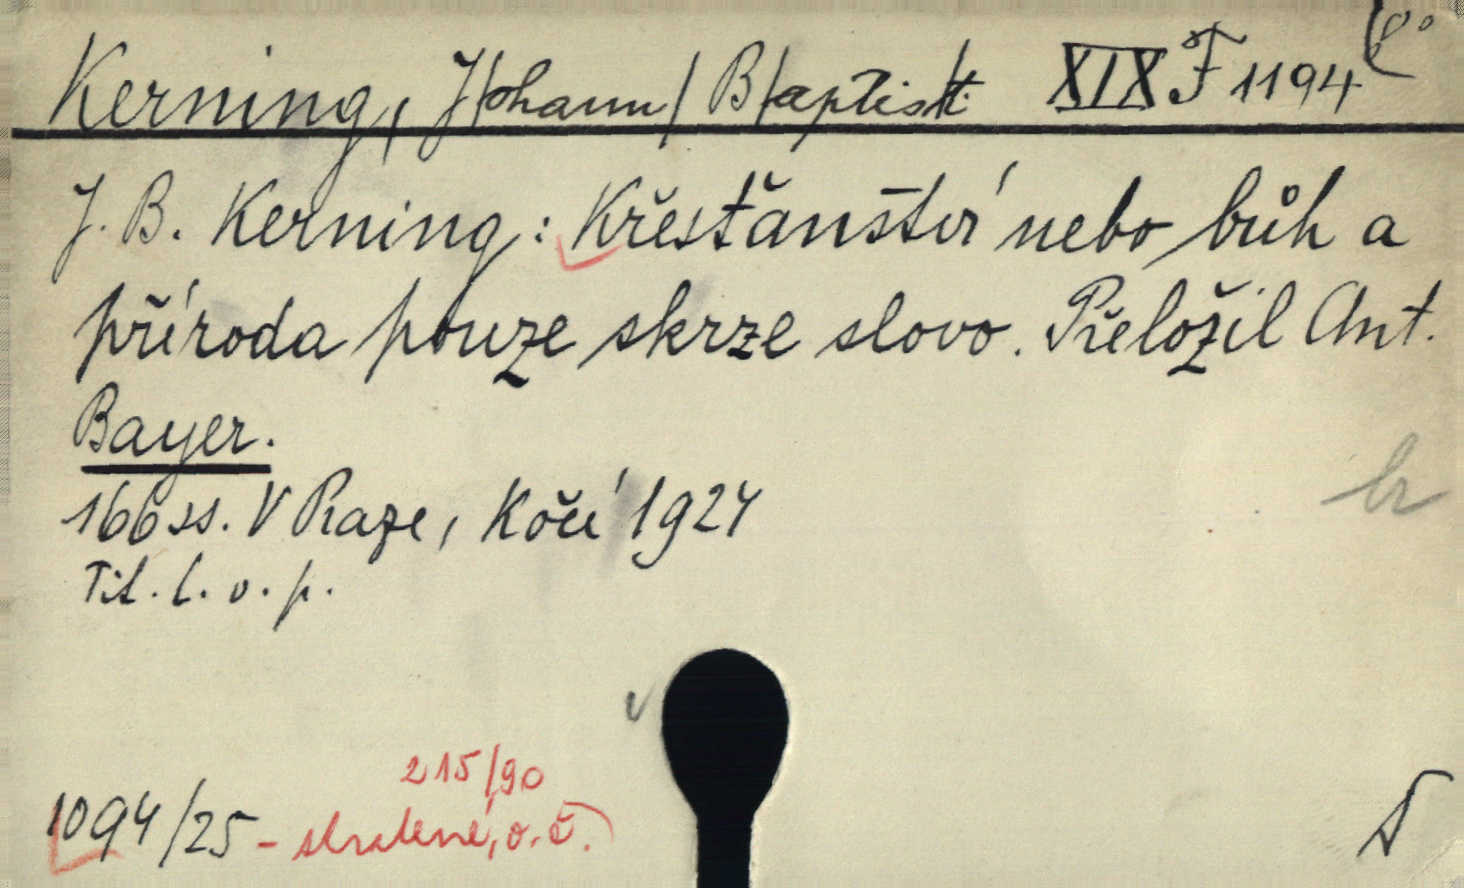 Kerning, J/ohann/ B/aptist/. XIX F 1194
J. B. Kerning: Křesťanství nebo bůh a
příroda pouze skrze slovo. Přeložil Ant.
Bayer.
166 ss. V Praze, Kočí 1924
Tit. l. v. p.
215/90
1094/25 - stratené, o. č.